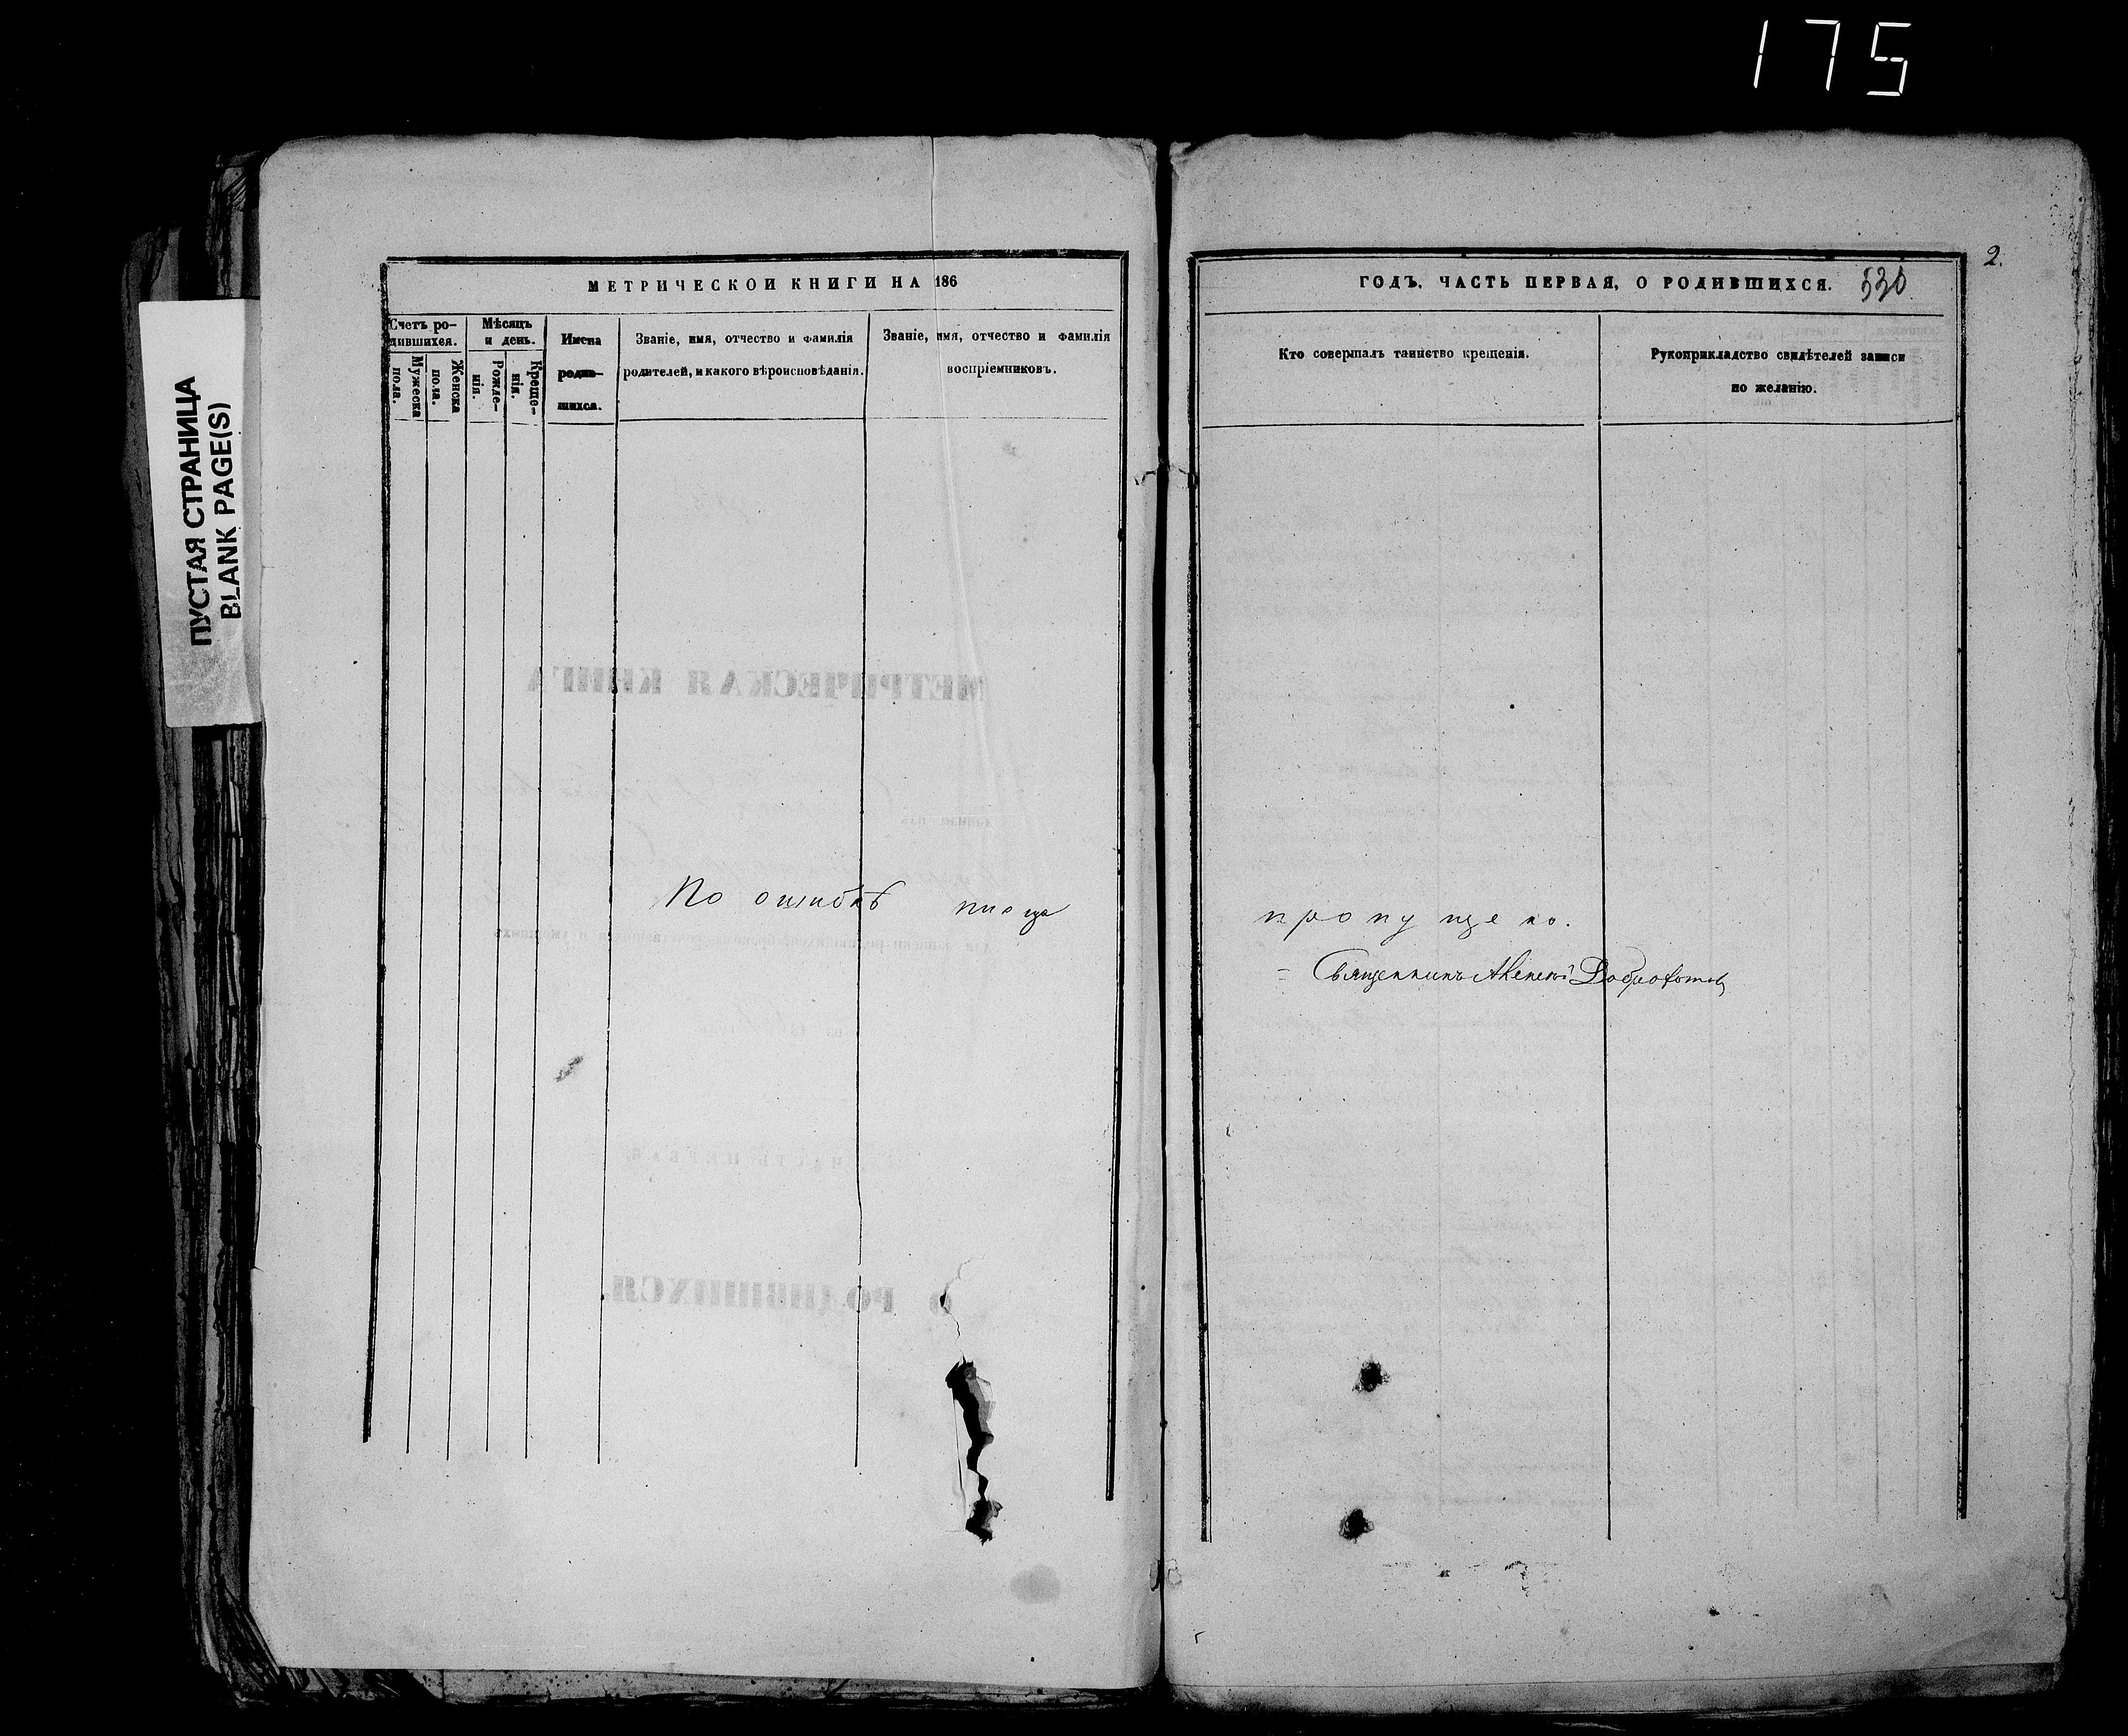 175
ПУСТАЯ СТРАНИЦА
BLANK PAGE(S)
МЕТРИЧЕСКОЙ КНИГИ НА 186
Счетъ ро-
дившихся.
Мужеска
пола.
Женска
пола.
Мѣсяцъ
и день.
Рожде-
нія.
Креще-
нія.
Имена
родив-
шихся.
Званіе, имя, отчество и фамилія
родителей, и какого вѣроисповѣданія.
Званіе, имя, отчество и фамилія
воспріемниковъ.
По ошибкѣ писца
2.
ГОДЪ. ЧАСТЬ ПЕРВАЯ, О РОДИВШИХСЯ. 530
Кто совершалъ таинство крещенія.
Рукоприкладство свидѣтелей записи
по желанію.
пропущено.
Священникъ Алексѣй